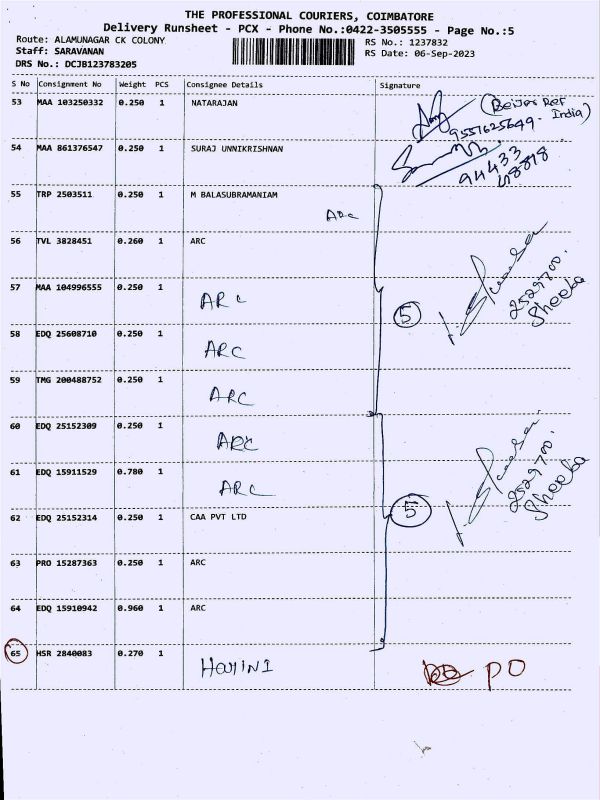 THE PROFESSIONAL COURIERS, COIMBATORE
Delivery Runsheet - PCX - Phone No.:0422-3505555 - Page No.:5
Route: ALAMUNAGAR CK COLONY RS No.: 1237832
Staff: SARAVANAN RS Date: 06-Sep-2023
DRS No.: DCJB123783205
S No Consignment No Weight PCS Consignee Details Signature
53 MAA 103250332 0.250 1 NATARAJAN (Beijer Ref India)
9551625649.
54 MAA 861376547 0.250 1 SURAJ UNNIKRISHNAN
94433
48878
55 TRP 2503511 0.250 1 M BALASUBRAMANIAM
ARC
56 TVL 3828451 0.260 1 ARC
57 MAA 104996555 0.250 1 ARC 5 2529700. Sheeba
58 EDQ 25608710 0.250 1 ARC
59 TMG 200488752 0.250 1 ARC
60 EDQ 25152309 0.250 1 ARC
61 EDQ 15911529 0.780 1 ARC 2529700. Sheeba
62 EDQ 25152314 0.250 1 CAA PVT LTD 5
63 PRO 15287363 0.250 1 ARC
64 EDQ 15910942 0.960 1 ARC
65 HSR 2840083 0.270 1 Harini PO